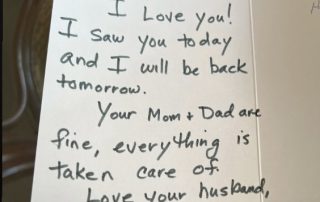 I Love you!
I saw you today
and I will be back
tomorrow.
Your Mom + Dad are
fine, everything is
taken care of.
Love your husband,